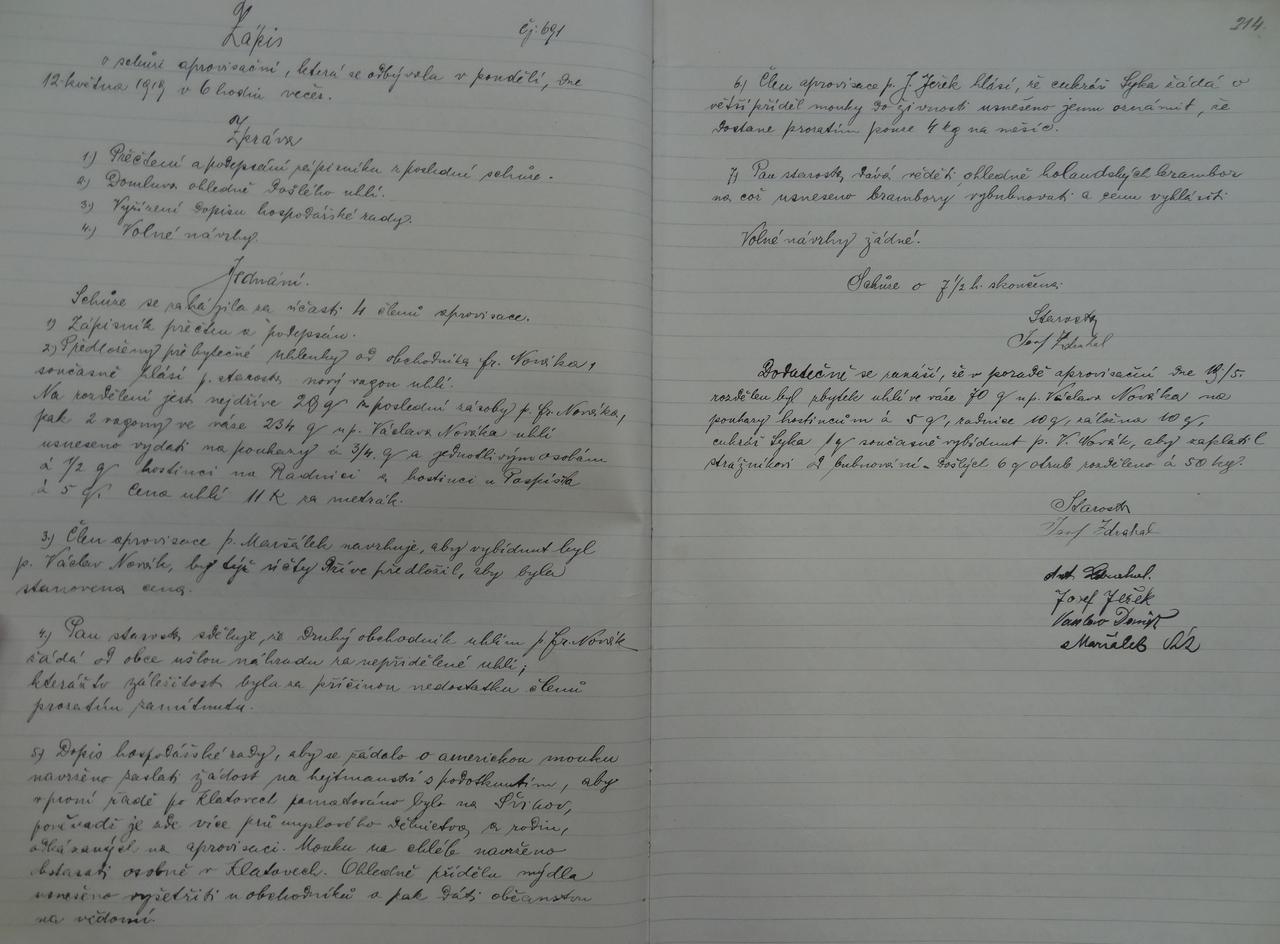 Zápis
čj: 691
o schůzi aprovisační, která se odbývala v pondělí, dne
12. května 1919 v 6 hodin večer.
Zpráva
1.) Přečtení a podepsání zápisníku z poslední schůze.
2.) Domluva ohledně došlého uhlí.
3.) Vyřízení dopisu hospodářské rady.
4.) Volné návrhy.
Jednání.
Schůze se zahájila za účasti 4 členů aprovisace.
1) Zápisník přečten a podepsán.
2) Předloženy přebytečné uhlenky od obchodníka Fr. Nováka,
současně hlásí p. starosta nový vagon uhlí.
Na rozdělení jest nejdříve q poslední zásoby p. Fr. Nováka,
pak 2 vagony ve váze 234 q u p. Václava Nováka uhlí
usneseno vydati na poukazy à 3/4. q a jednotlivým osobám
à 1/2 q hostinci na Radnici a hostinci u Pospíšila
à 5 q. Cena uhlí 11 K za metrák.
3.) Člen aprovisace p. Maršálek navrhuje, aby vybídnut byl
p. Václav Novák, by týž účty dříve předložil, aby byla
stanovena cena.
4.) Pan starosta sděluje, že druhý obchodník uhlím p Fr. Novák
žádá od obce ušlou náhradu za nepřidělené uhlí;
kterážto záležitost byla za příčinou nedostatku členů
prozatím zamítnuta.
5.) Dopis hospodářské rady, aby se žádalo o americkou mouku
navrženo zaslati žádost na hejtmanství s podotknutím, aby
v první řadě po Klatovech pamatováno bylo na Švihov,
poněvadž je zde více průmyslového dělnictva a rodin,
odkázaných na aprovisaci. Mouku na chléb navrženo
osobně v Klatovech. Ohledně přídělu mýdla
usneseno vyšetřiti u obchodníků a pak dáti občanstvu
na vědomí.
214.
6.) Člen aprovisace p. J. Ježek hlásí, že cukrář Syka žádá o
větší příděl mouky do živnosti usneseno jemu oznámit, že
dostane prozatím pouze 4 kg na měsíc.
7.) Pan starosta dává věděti ohledně holandských brambor
na což usneseno brambory vybubnovati a cenu vyhlásiti
Volné návrhy žádné.
Schůze o 7 1/2 h. skončena.
Starosta
Josef Zdrahal
Dodatečně se zanáší, že v poradě aprovisační dne 19/5.
rozdělen byl zbytek uhlí ve váze 70 q u p. Václava Nováka na
poukazy hostincům à 5 q, radnice 10 q, záložna 10 q,
cukrář Syka 1 q současně vybídnut p. V. Novák, aby zaplatil
strážníkovi od bubnování – došlých 6 q otrub rozděleno à 50 kg.
Starosta
Josef Zdrahal
Ant. Zdrahal.
Josef Ježek
Václav
Maršálek